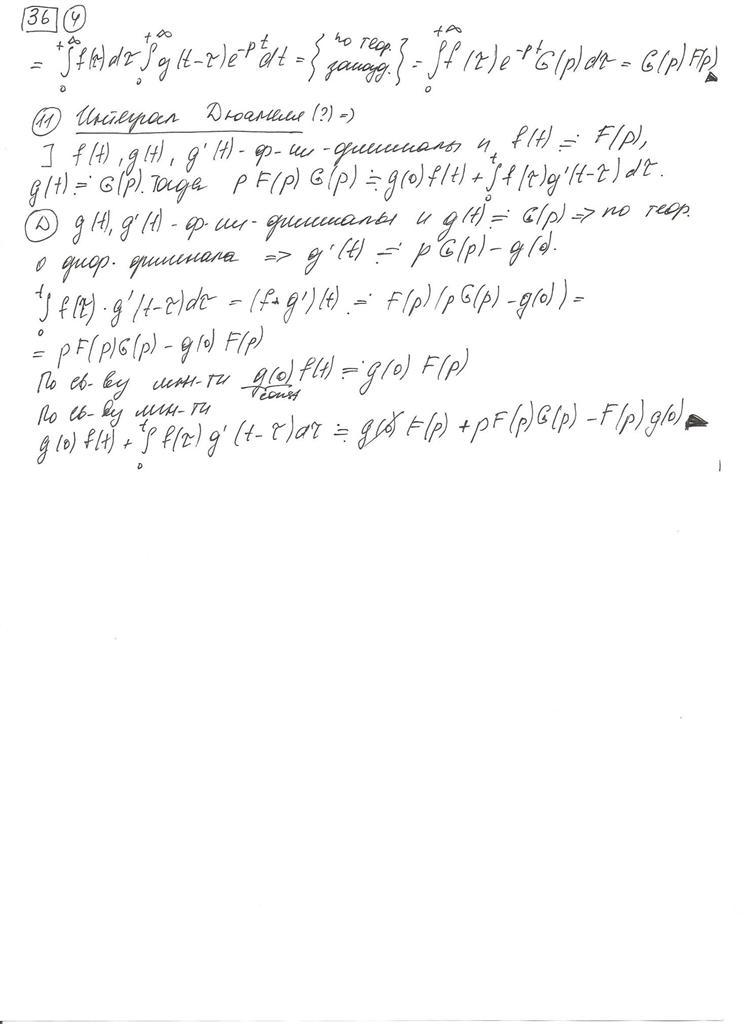 36 4
= ∫₀^{+∞} f(τ)dτ ∫₀^{+∞} g(t-τ)e^{-pt}dt = {по теор. запазд.} = ∫₀^{+∞} f(τ)e^{-pt}G(p)dτ = G(p)F(p)
11 Интеграл Дюамеля (?) =>
] f(t), g(t), g'(t) - ф-ии-оригиналы и f(t) ≓ F(p),
g(t) ≓ G(p). Тогда p F(p) G(p) ≓ g(0)f(t) + ∫₀^t f(τ)g'(t-τ)dτ.
Д g(t), g'(t) - ф-ии-оригиналы и g(t) ≓ G(p) => по теор.
о диф. оригинала => g'(t) ≓ pG(p) - g(0).
∫₀^t f(τ)·g'(t-τ)dτ = (f*g')(t) ≓ F(p)(pG(p) - g(0)) =
= pF(p)G(p) - g(0)F(p)
По св-ву лин-ти g(0)f(t) ≓ g(0) F(p)
const
По св-ву лин-ти
g(0)f(t) + ∫₀^t f(τ)g'(t-τ)dτ ≓ g(0)F(p) + pF(p)G(p) - F(p)g(0)